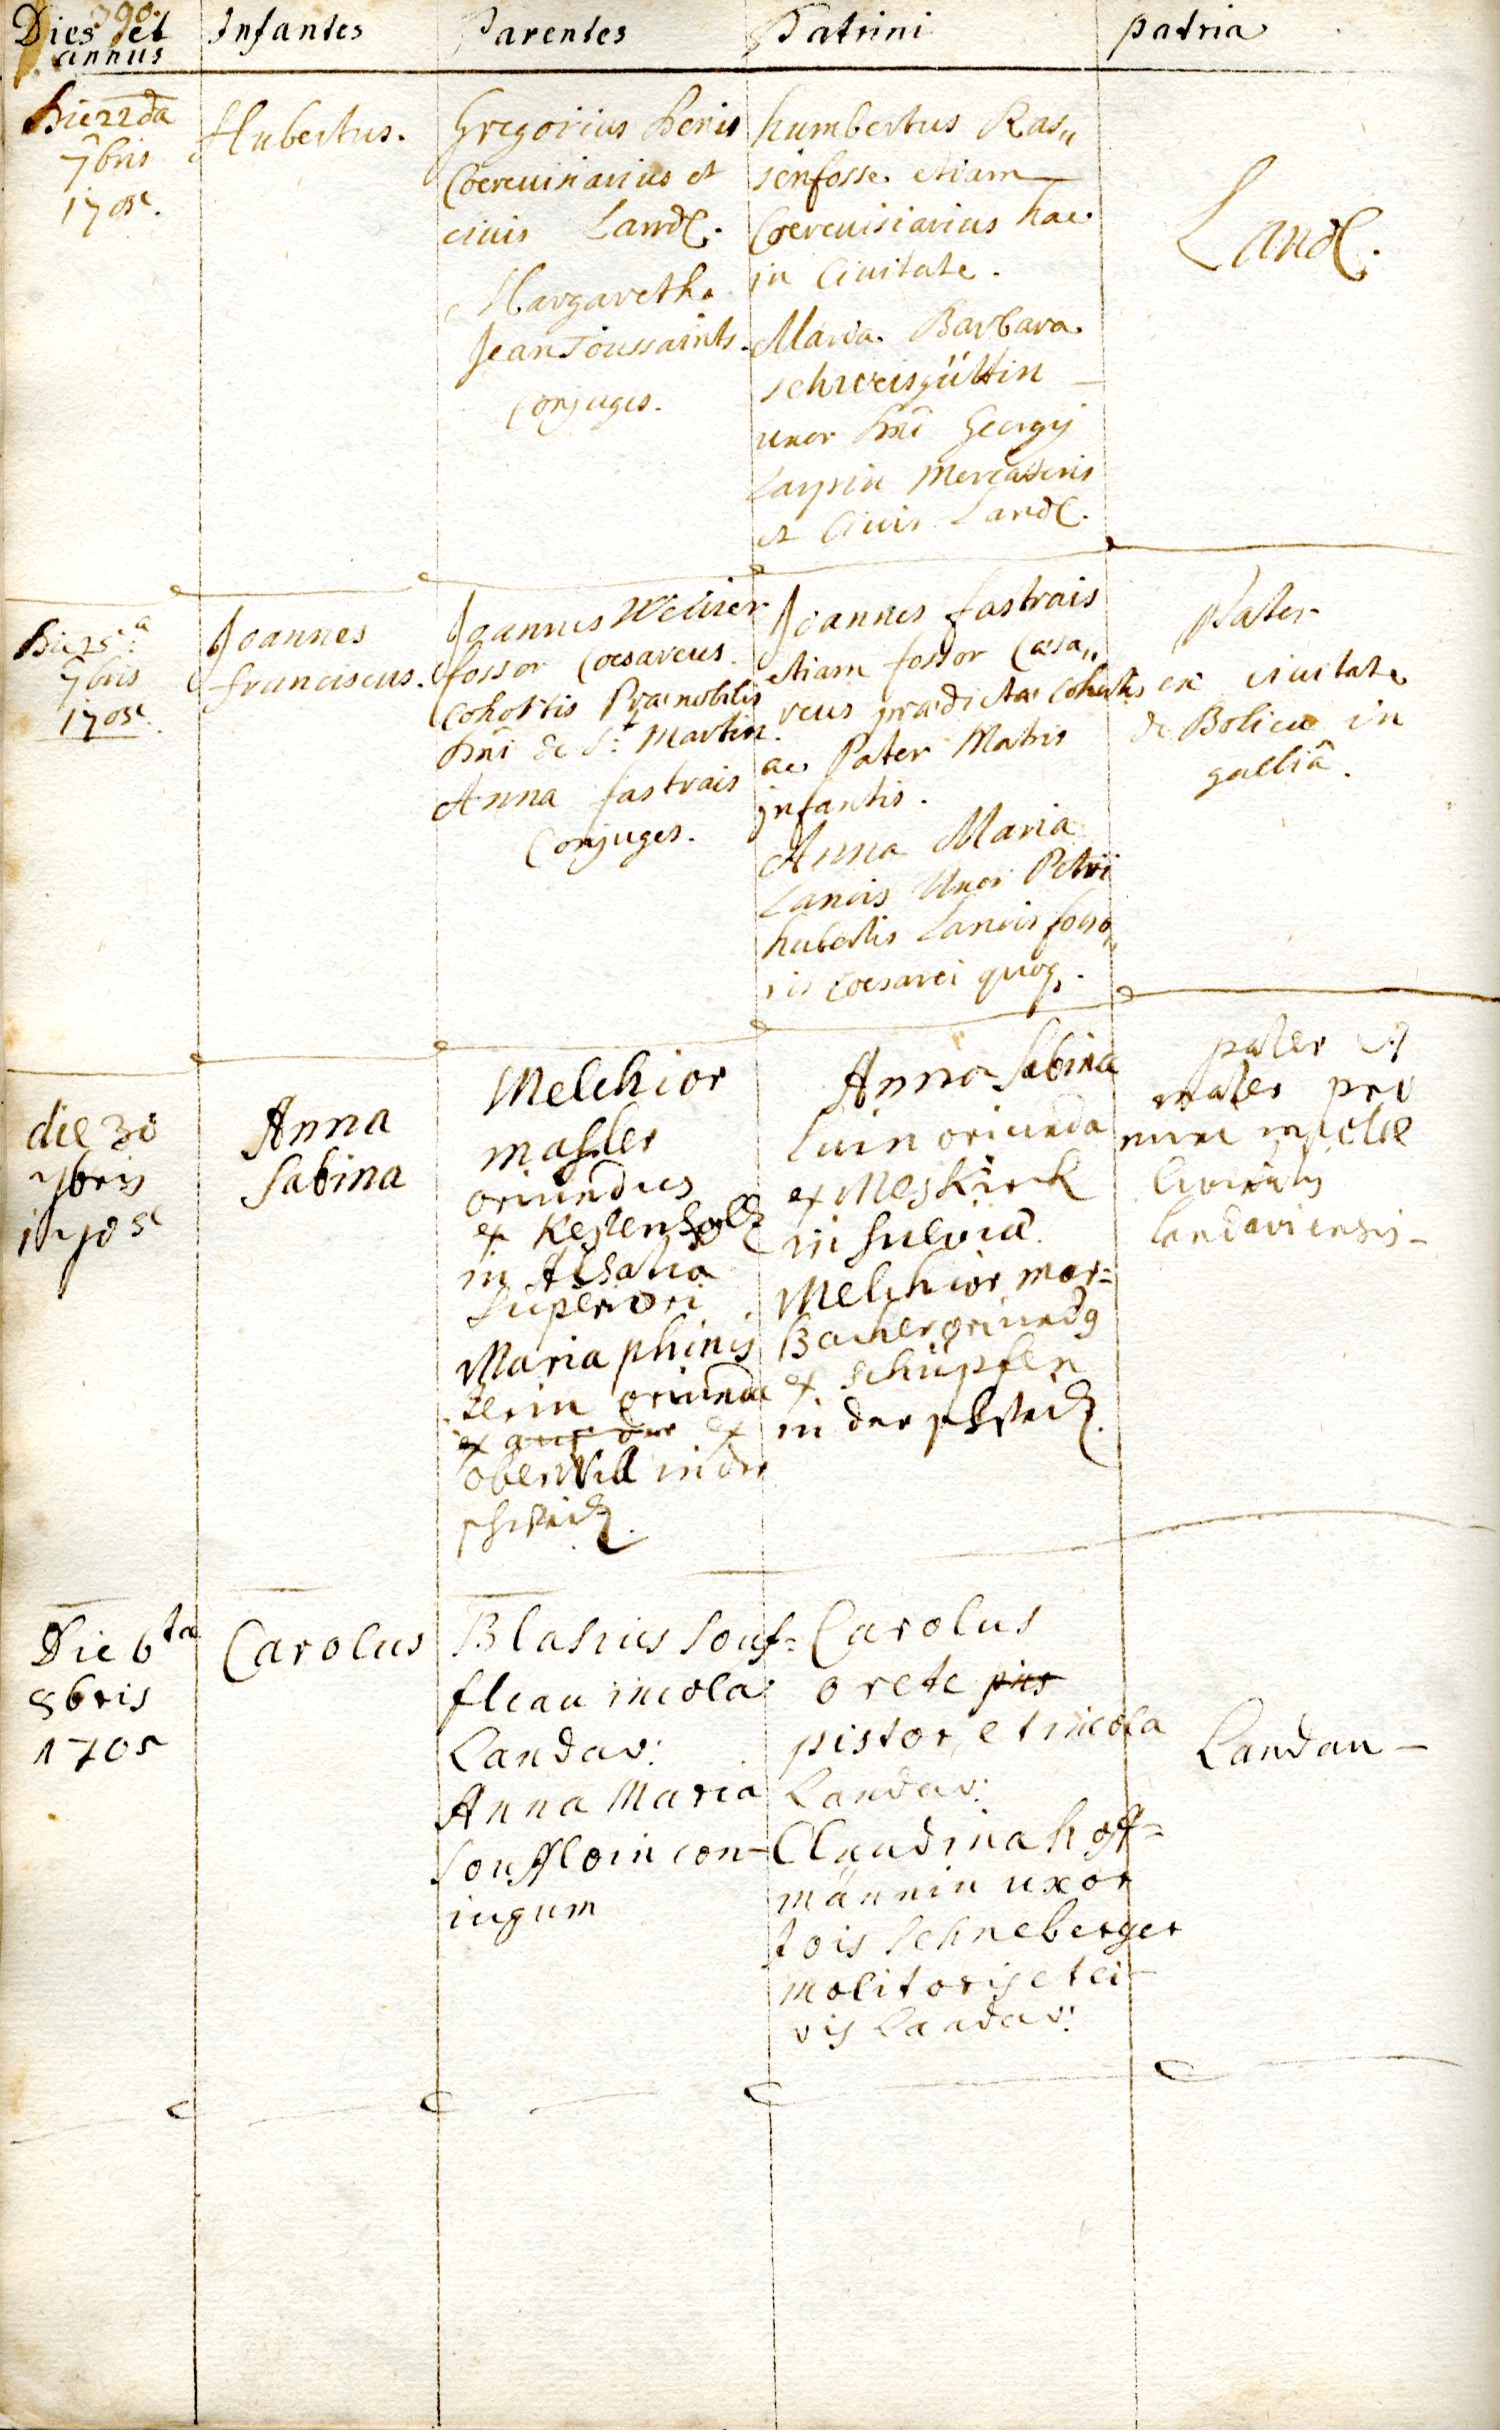 390.
Dies et
annus
Infantes
Parentes
Patrini
patria
Die 22da
7bris
1705.
Hubertus.
Gregorius Denis
Coerevisiarius et
civis Land.
Margaretha
Jean Toussaints.
Conjuges.
humbertus Ras„
senfosse etiam
Coerevisiarius hac
in Civitate.
Maria Barbara
schweisgüttin
uxor Dni Georgij
Laysin Mercatoris
et Civis Land.
Land.
Die 25a
7bris
1705.
Joannes
franciscus.
Joannes Weiser
fossor Coesareus
cohortis Prænobilis
Dni de St: Martin.
Anna fastrais
Conjuges.
Joannes fastrais
etiam fossor Cæsa„
reus prædictæ cohortis
ac Pater Matris
jnfantis.
Anna Maria
Lanois Uxor Petri
huberti Lanois fosso„
ris Coesarei quoq.
Pater
ex civitate
de Bolieu in
galliâ.
die 30
7bris
1705
Anna
Sabina
Melchior
masler
oriundus
ex Kestenholz
in Alsatia
Superiori
Maria phinis
terin oriunda
ex auf der ex
oberwill in der
schweitz.
Anna Sabina
Luin oriunda
ex Meskirck
in suevia.
Melchior mor=
Bacher oriundg
ex schüpfen
in der schweitz.
pater et
mater pro
nunc incolæ
Civitatis
landaviensis –
Die 6ta
8bris
1705
Carolus
Blasius Souf=
fleau incola
Landav:
Anna Maria
Souffloin con-
iugum
Carolus
orete pis
pistor et incola
Landav:
Claudina hoff=
männin uxor
Jois Schneberger
molitoris et ci-
vis Landav:
Landau –